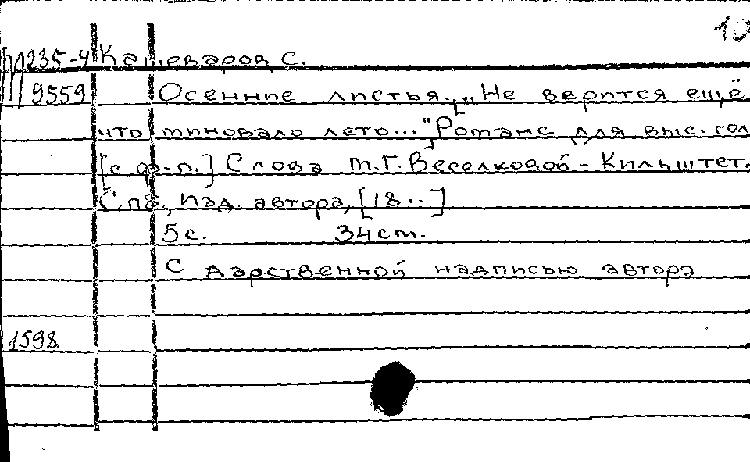 10
235-4 Кашеваров, С.
9559 Осенние листья. „Не верится ещё,
что миновало лето..." Романс для выс. гол.
[с ф-п.] Слова М.Г. Веселковой-Кильштет.
С.пб., изд. автора, [18..]
5с. 34см.
С дарственной надписью автора
1598